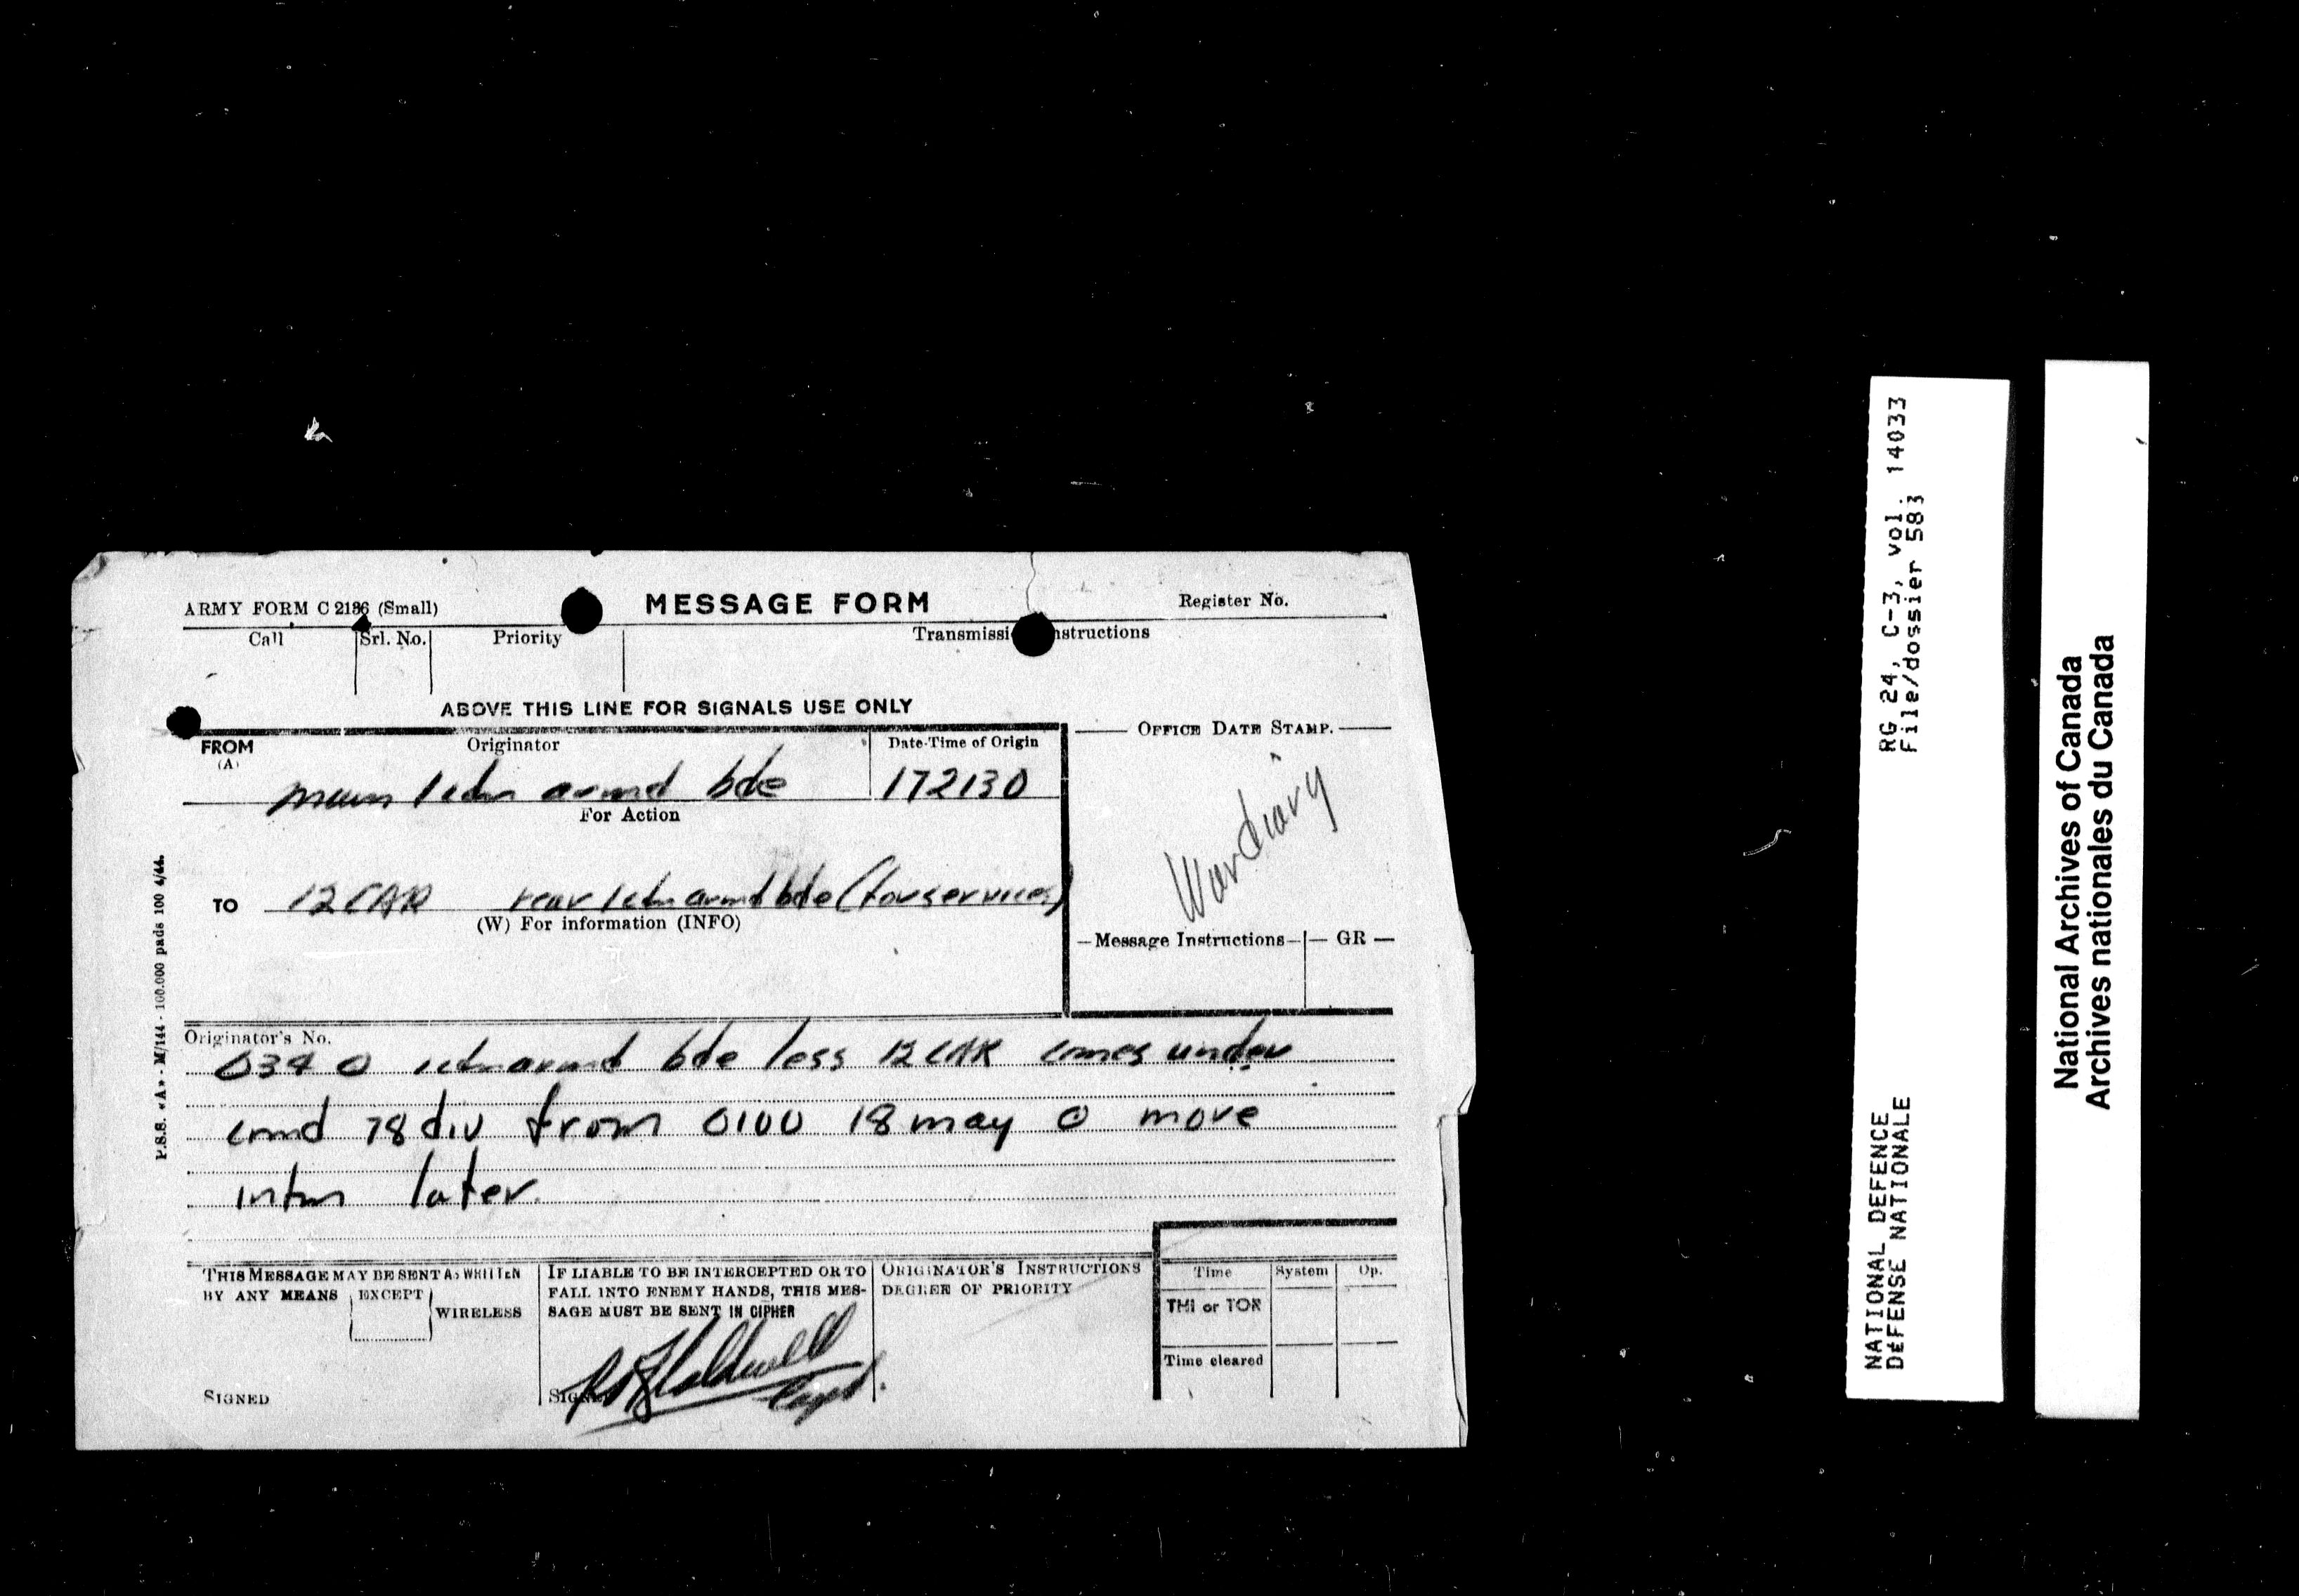 ARMY FORM C 2136 (Small)
MESSAGE FORM
Register No.
Call
Srl. No.
Priority
Transmissi nstructions
ABOVE THIS LINE FOR SIGNALS USE ONLY
FROM
(A)
Originator
Date-Time of Origin
OFFICE DATE STAMP.
main 1 cdn armd bde
172130
For Action
War diary
TO 12 CAR rear 1 cdn armd bde (for services)
(W) For information (INFO)
Message Instructions
GR
P.S.S. «A» - M/144 - 100.000 pads 100 4/44.
Originator's No.
O340 1 cdn armd bde less 12 CAR comes under
cmd 78 div from 0100 18 may O move
intm later
THIS MESSAGE MAY BE SENT AS WRITTEN
BY ANY MEANS EXCEPT
WIRELESS
SIGNED
IF LIABLE TO BE INTERCEPTED OR TO
FALL INTO ENEMY HANDS, THIS MES-
SAGE MUST BE SENT IN CIPHER
Caldwell
Capt.
ORIGINATOR'S INSTRUCTIONS
DEGREE OF PRIORITY
Time
System
Op.
THI or TOR
Time cleared
NATIONAL DEFENCE RG 24, C-3, vol. 14033
DÉFENSE NATIONALE File/dossier 583
National Archives of Canada
Archives nationales du Canada